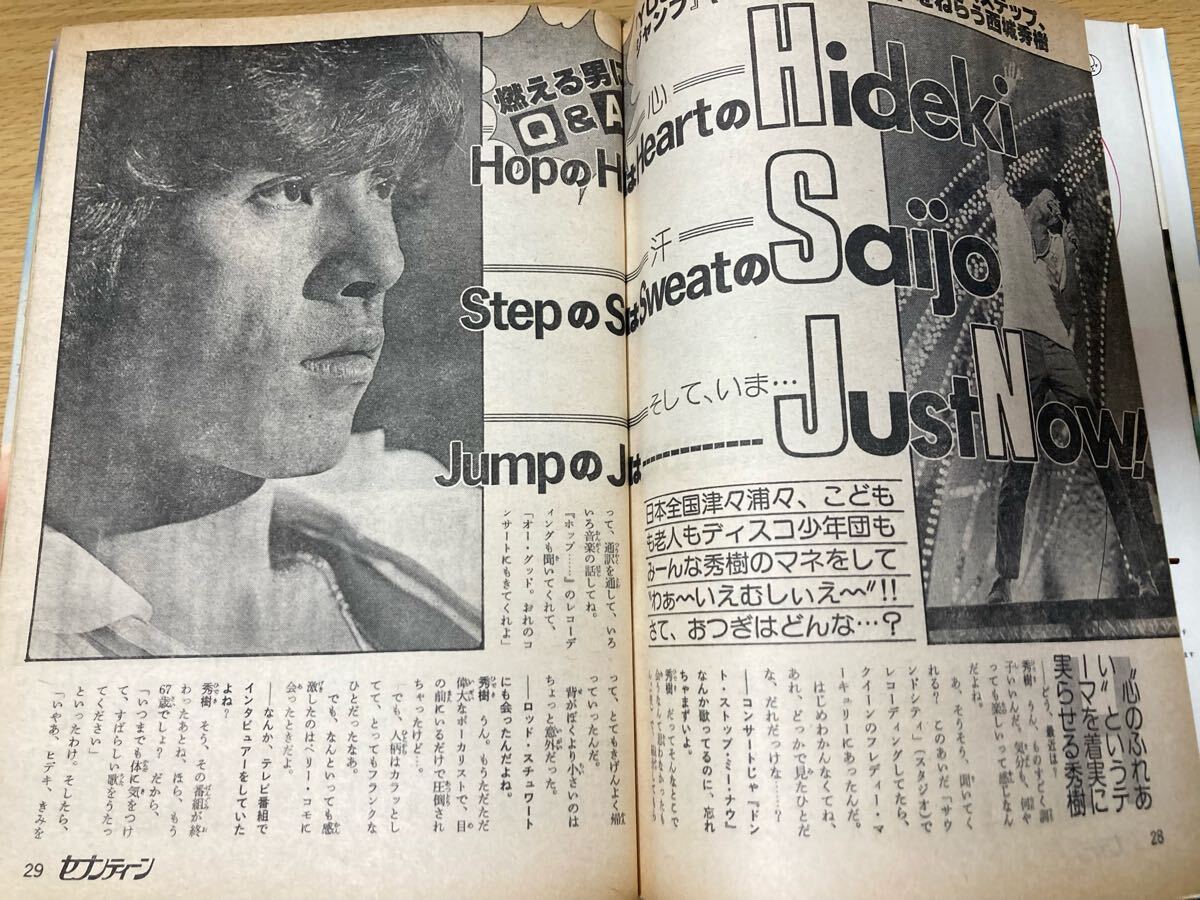 ステップ、
をねらう西城秀樹
燃える男に
Q&A
心
HopのHはHeartのHideki
汗
StepのSはSweatのSaijo
そして、いま…
JumpのJは------------JustNow!
日本全国津々浦々、こども
も老人もディスコ少年団も
みーんな秀樹のマネをして
“わぁ〜いえむしいえ〜”!!
さて、おつぎはどんな…?
“心のふれあ
い”というテ
ーマを着実に
実らせる秀樹
――どう、最近は?
秀樹 うん、ものすごく調
子いいんだ。気分も、何や
っても楽しいって感じなん
だよね。
あ、そうそう、聞いてく
れる? このあいだ「サウ
ンドシティ」(スタジオ)で
レコーディングしてたら、
クイーンのフレディー・マ
ーキュリーにあったんだ。
はじめわかんなくてね、
あれ、どっかで見たひとだ
な、だれだっけな……?
――コンサートじゃ『ドン
ト・ストップ・ミー・ナウ』
なんか歌ってるのに、忘れ
ちゃまずいよ。
秀樹 だってそんなとこで
って、通訳を通して、いろ
いろ音楽の話してね。
『ホップ……』のレコーデ
ィングも聞いてくれて、
「オー・グッド。おれのコ
ンサートにもきてくれよ」
って、とてもきげんよく帰
っていったんだ。
背がぼくより小さいのは
ちょっと意外だった。
――ロッド・スチュワート
にも会ったんだよね。
秀樹 うん。もうただただ
偉大なボーカリストで、目
の前にいるだけで圧倒され
ちゃったけど…。
でも、人柄はカラッとし
てて、とってもフランクな
ひとだったなあ。
でも、なんといっても感
激したのはペリー・コモに
会ったときだよ。
――なんか、テレビ番組で
インタビュアーをしていた
よね?
秀樹 そう、その番組が終
わったあとね、ほら、もう
67歳でしょ? だから、
「いつまでも体に気をつけ
て、すばらしい歌をうたっ
てください」
といったわけ。そしたら、
「いやあ、ヒデキ、きみを
28
29 セブンティーン